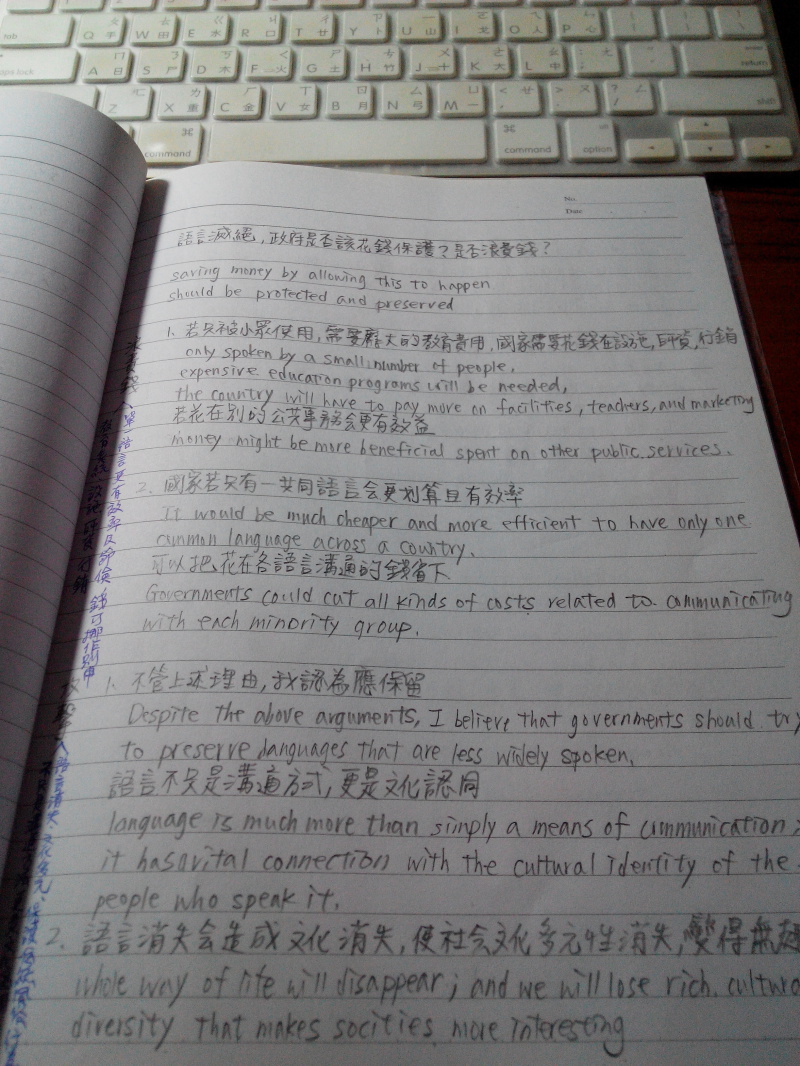 tab Q 手 W 田 E 水 R 口 T 廿 Y 卜 U 山 I 戈 O 人 P 心
caps lock A 日 S 尸 D 木 F 火 G 土 H 竹 J 十 K 大 L 中 return
Z X 重 C 金 V 女 B 月 N 弓 M 一 shift
command command option
No.
Date
語言滅絕,政府是否該花錢保護?是否浪費錢?
saving money by allowing this to happen
should be protected and preserved
1. 若只被小眾使用,需要龐大的教育費用,國家需要花錢在設施,師資,行銷
only spoken by a small number of people,
expensive education programs will be needed,
the country will have to pay more on facilities, teachers, and marketing
若花在別的公共事務会更有效益
money might be more beneficial spent on other public services.
2. 國家若只有一共同語言会更划算且有效率
It would be much cheaper and more efficient to have only one
cummon language across a country.
可以把花在各語言溝通的錢省下
Governments could cut all kinds of costs related to communicating
with each minority group.
1. 不管上述理由,我認為應保留
Despite the above arguments, I believe that governments should try
to preserve languages that are less widely spoken.
語言不只是溝通方式,更是文化認同
language is much more than simply a means of cummunication;
it has a vital connection with the cultural identity of the
people who speak it.
2. 語言消失会造成文化消失,使社会文化多元性消失,變得無趣
whole way of life will disappear; and we will lose rich cultura
diversity that makes socities more interesting
浪費錢
單一語言更有效率及節儉,錢可挪作別用